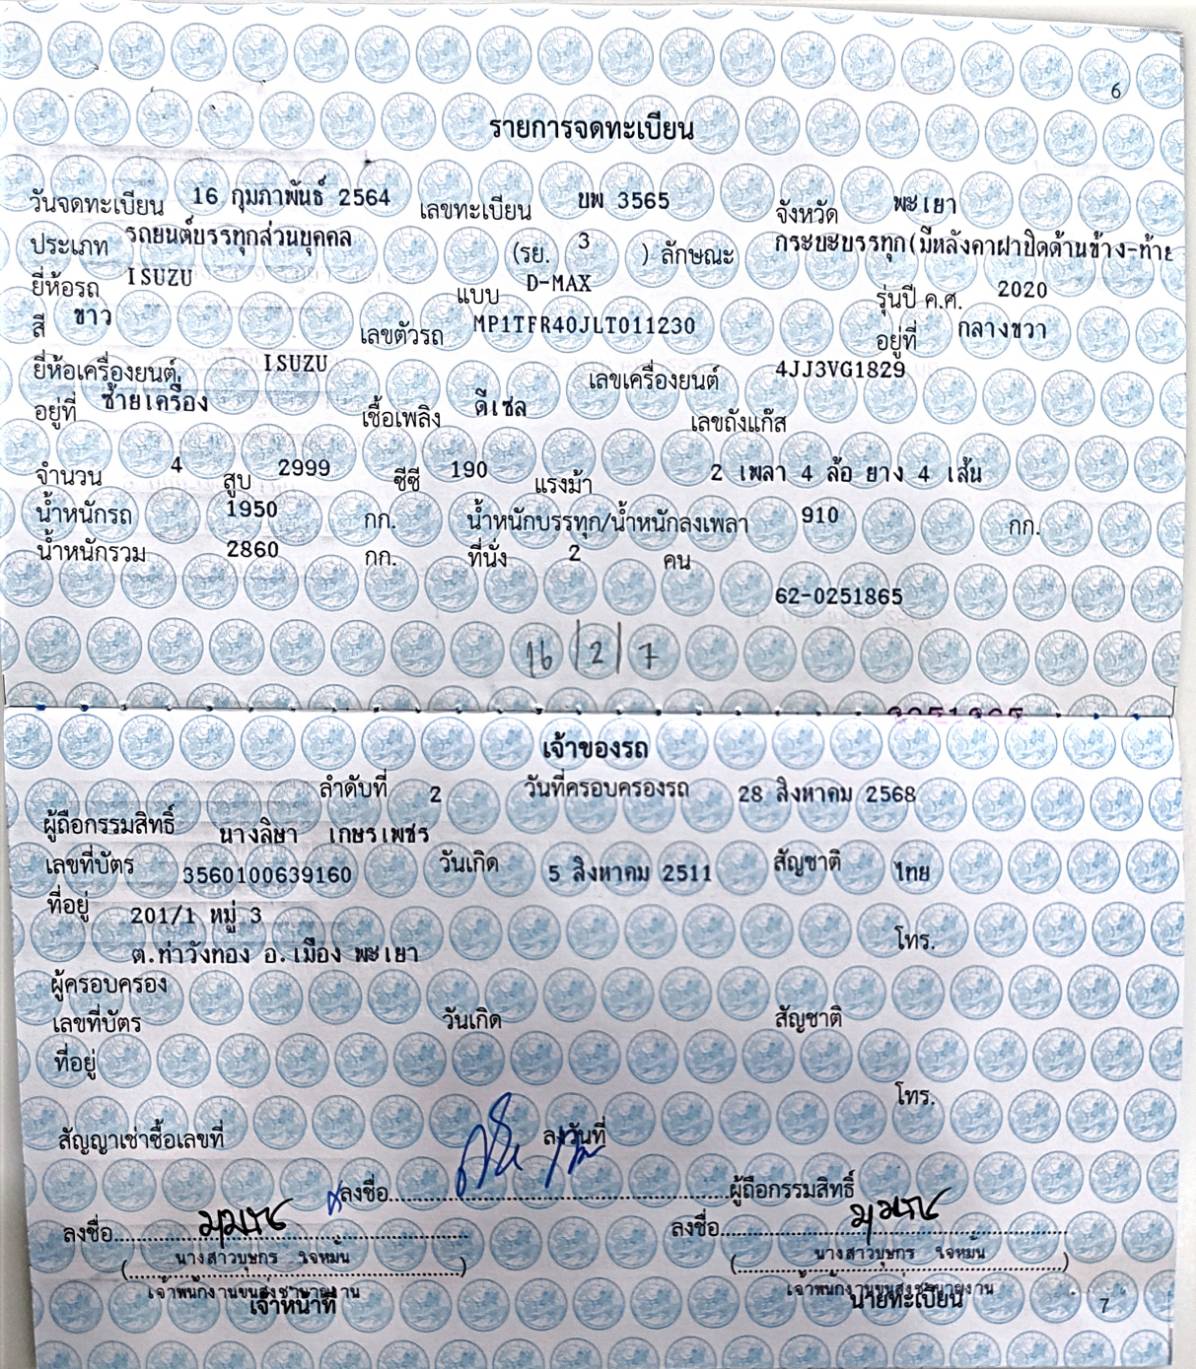 6
รายการจดทะเบียน
วันจดทะเบียน 16 กุมภาพันธ์ 2564 เลขทะเบียน บพ 3565 จังหวัด พะเยา
ประเภท รถยนต์บรรทุกส่วนบุคคล (รย. 3 ) ลักษณะ กระบะบรรทุก(มีหลังคาฝาปิดด้านข้าง-ท้าย
ยี่ห้อรถ ISUZU แบบ D-MAX รุ่นปี ค.ศ. 2020
สี ขาว เลขตัวรถ MP1TFR40JLT011230 อยู่ที่ กลางขวา
ยี่ห้อเครื่องยนต์ ISUZU เลขเครื่องยนต์ 4JJ3VG1829
อยู่ที่ ซ้ายเครื่อง เชื้อเพลิง ดีเซล เลขถังแก๊ส
จำนวน 4 สูบ 2999 ซีซี 190 แรงม้า 2 เพลา 4 ล้อ ยาง 4 เส้น
น้ำหนักรถ 1950 กก. น้ำหนักบรรทุก/น้ำหนักลงเพลา 910 กก.
น้ำหนักรวม 2860 กก. ที่นั่ง 2 คน
62-0251865
16/2/7
เจ้าของรถ
ลำดับที่ 2 วันที่ครอบครองรถ 28 สิงหาคม 2568
ผู้ถือกรรมสิทธิ์ นางลิษา เกษรเพชร
เลขที่บัตร 3560100639160 วันเกิด 5 สิงหาคม 2511 สัญชาติ ไทย
ที่อยู่ 201/1 หมู่ 3
ต.ท่าวังทอง อ.เมือง พะเยา โทร.
ผู้ครอบครอง
เลขที่บัตร วันเกิด สัญชาติ
ที่อยู่
โทร.
สัญญาเช่าซื้อเลขที่ ลงวันที่
ลงชื่อ ผู้ถือกรรมสิทธิ์
ลงชื่อ ลงชื่อ
(นางสาวบุษกร ใจหมั้น) (นางสาวบุษกร ใจหมั้น)
เจ้าพนักงานขนส่งชำนาญงาน เจ้าพนักงานขนส่งชำนาญงาน
เจ้าหน้าที่ นายทะเบียน 7